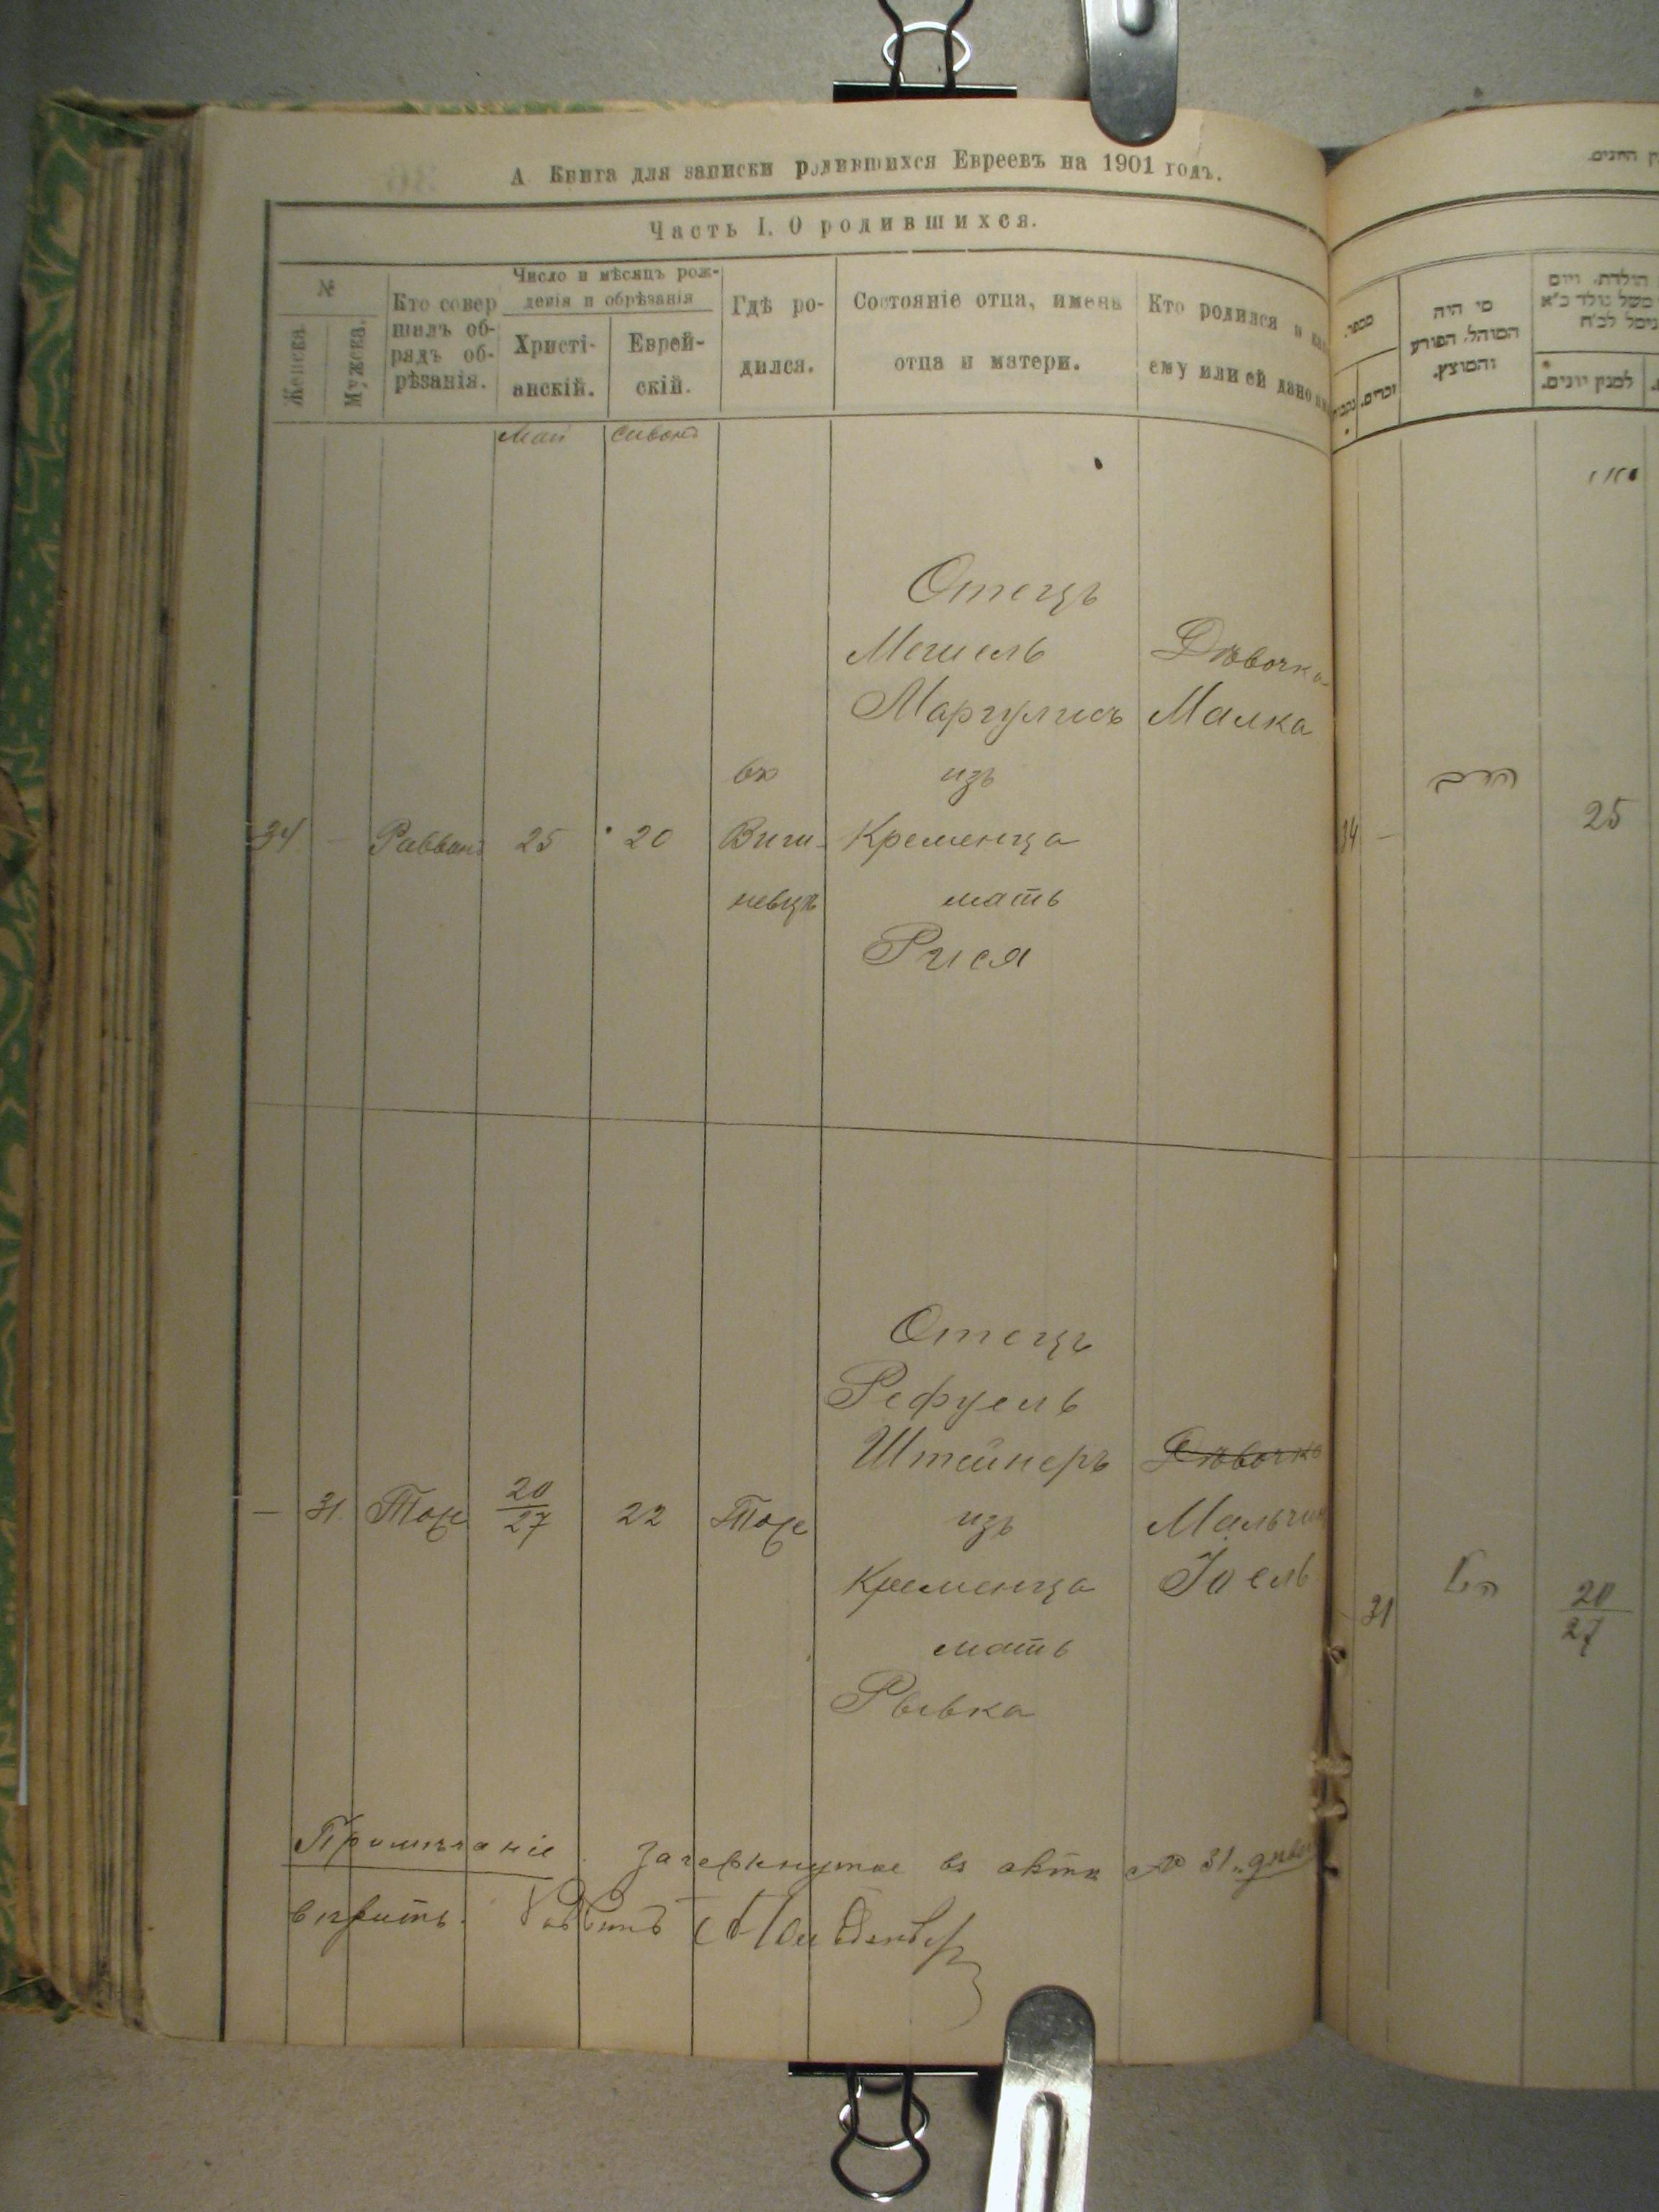 А Книга для записки родившихся Евреевъ на 1901 годъ.
Часть I. О родившихся.
№
Женска
Мужска.
Кто совер
шалъ об-
рядъ об-
рѣзанія.
Число и мѣсяцъ рож-
денія и обрѣзанія
Христі-
анскій.
Еврей-
скій.
Гдѣ ро-
дился.
Состояніе отца, имена
отца и матери.
Кто родился и
ему или ей дано
Май
Сивонъ
34
—
Раввинъ
25
20
въ
Виш-
невцѣ
Отецъ
Мешель
Маргулисъ
изъ
Кременца
мать
Рися
Дѣвочка
Малка
—
31
Тоже
20
27
22
Тоже
Отецъ
Рефуель
Штейнеръ
изъ
Кременца
мать
Рывка
Дѣвочка
Мальчик
Іоель
Примѣчаніе. Зачеркнутое въ актѣ № 31 „дѣвоч
вѣрить. Раввинъ
מספר
נקבות
זכרים.
מי היה
המוהל, הפורע
והמוצץ.
הולדת, ויום
משל נולד כ"א
ניסן לכ"ח
למנין יונים.
34
—
הרב
25
31
הנ"ל
20
27